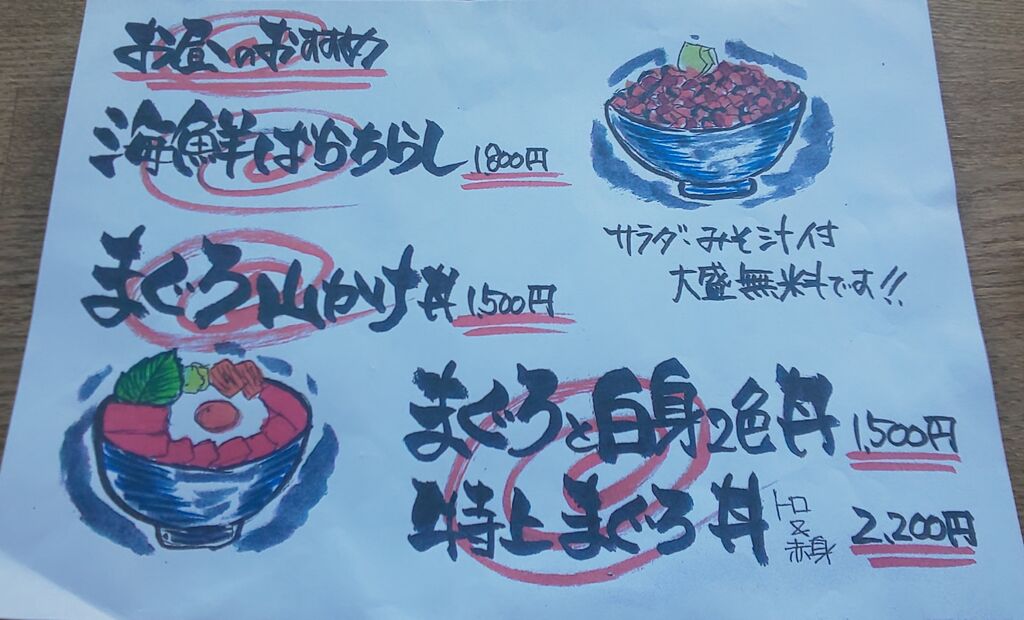 お昼のおすすめ
海鮮ばらちらし 1,800円
まぐろ山かけ丼 1,500円
サラダ・みそ汁付
大盛無料です!!
まぐろと白身2色丼 1,500円
特上まぐろ丼 トロ&赤身 2,200円